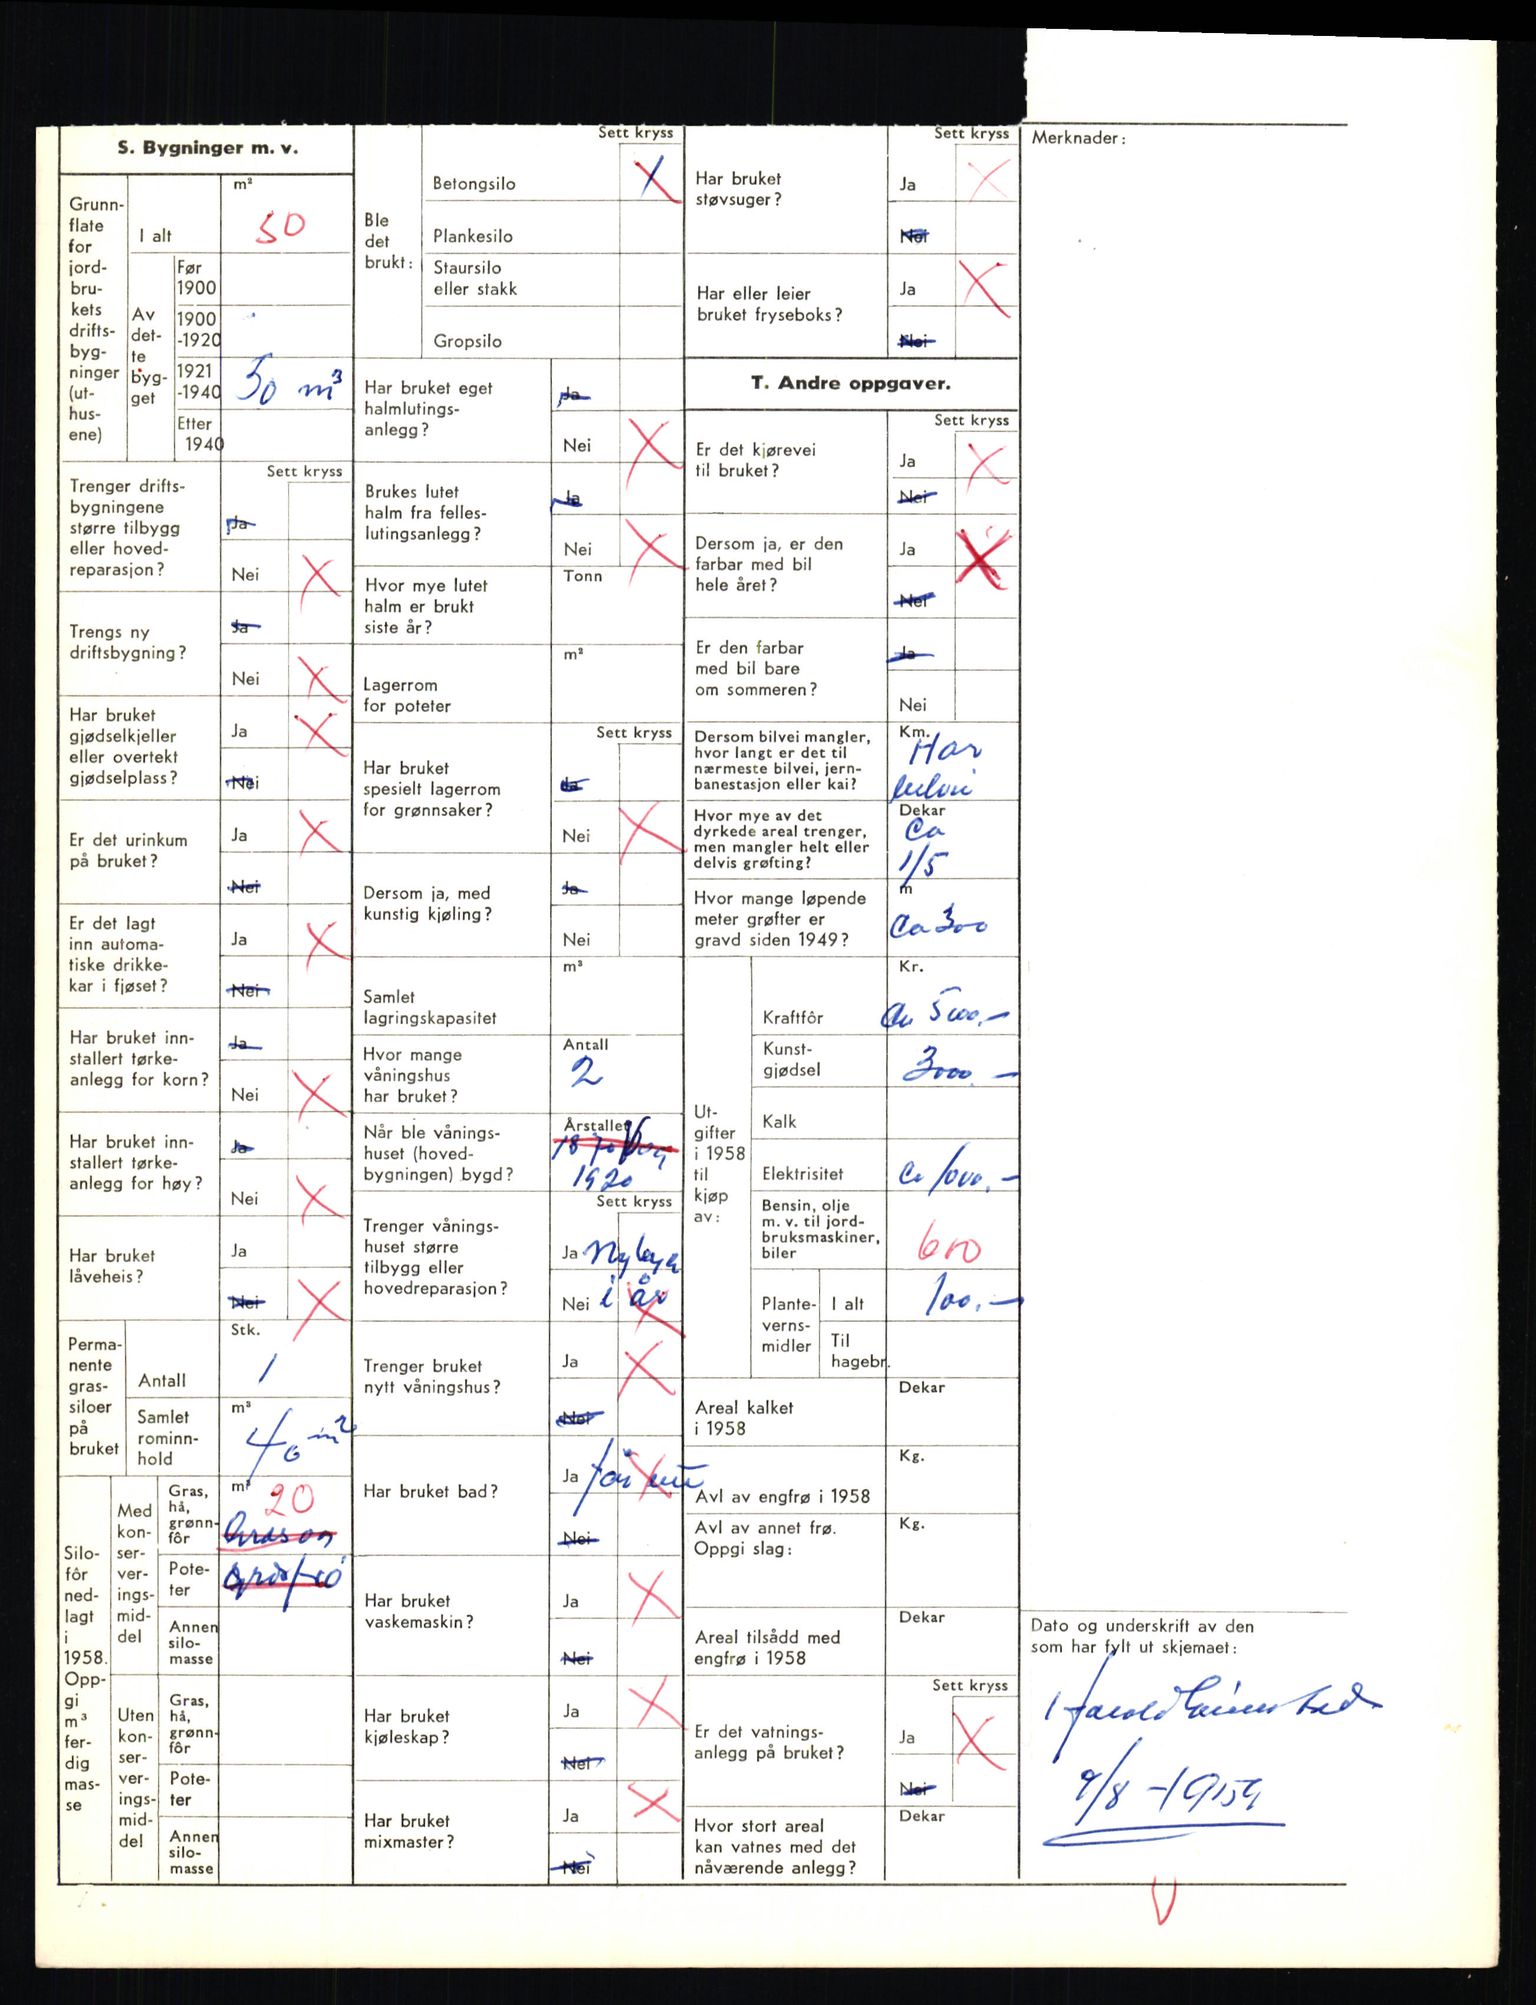 S. Bygninger m. v.
Grunn-
flate
for
jord-
bru-
kets
drifts-
byg-
ninger
(ut-
hus-
ene)
I alt
m²
50
Av
det-
te
byg-
get
Før
1900
1900
-1920
1921
-1940
50 m³
Etter
1940
Sett kryss
Trenger drifts-
bygningene
større tilbygg
eller hoved-
reparasjon?
Ja
Nei X
Trengs ny
driftsbygning?
Ja
Nei X
Har bruket
gjødselkjeller
eller overtekt
gjødselplass?
Ja X
Nei
Er det urinkum
på bruket?
Ja X
Nei
Er det lagt
inn automa-
tiske drikke-
kar i fjøset?
Ja X
Nei
Har bruket inn-
stallert tørke-
anlegg for korn?
Ja
Nei X
Har bruket inn-
stallert tørke-
anlegg for høy?
Ja
Nei X
Har bruket
låveheis?
Ja
Nei X
Perma-
nente
gras-
siloer
på
bruket
Antall
Stk.
1
Samlet
rominn-
hold
m³
40 m²
Silo-
fôr
ned-
lagt
i
1958.
Opp-
gi
m³
fer-
dig
mas-
se
Med
kon-
ser-
ver-
ings-
mid-
del
Gras,
hå,
grønn-
fôr
m³
20
Pote-
ter
Annen
silo-
masse
Uten
kon-
ser-
ver-
ings-
mid-
del
Gras,
hå,
grønn-
fôr
Pote-
ter
Annen
silo-
masse
Ble
det
brukt:
Sett kryss
Betongsilo X
Plankesilo
Staursilo
eller stakk
Gropsilo
Har bruket eget
halmlutings-
anlegg?
Ja
Nei X
Brukes lutet
halm fra felles-
lutingsanlegg?
Ja
Nei X
Hvor mye lutet
halm er brukt
siste år?
Tonn
Lagerrom
for poteter
m²
Sett kryss
Har bruket
spesielt lagerrom
for grønnsaker?
Ja
Nei X
Dersom ja, med
kunstig kjøling?
Ja
Nei
Samlet
lagringskapasitet
m³
Hvor mange
våningshus
har bruket?
Antall
2
Når ble vånings-
huset (hoved-
bygningen) bygd?
Årstallet
1870
1920
Sett kryss
Trenger vånings-
huset større
tilbygg eller
hovedreparasjon?
Ja Nybygd
Nei i år X
Trenger bruket
nytt våningshus?
Ja X
Nei
Har bruket bad?
Ja X
Nei
Har bruket
vaskemaskin?
Ja X
Nei
Har bruket
kjøleskap?
Ja X
Nei
Har bruket
mixmaster?
Ja X
Nei
Sett kryss
Har bruket
støvsuger?
Ja X
Nei
Har eller leier
bruket fryseboks?
Ja X
Nei
T. Andre oppgaver.
Sett kryss
Er det kjørevei
til bruket?
Ja X
Nei
Dersom ja, er den
farbar med bil
hele året?
Ja X
Nei
Er den farbar
med bil bare
om sommeren?
Ja
Nei
Dersom bilvei mangler,
hvor langt er det til
nærmeste bilvei, jern-
banestasjon eller kai?
Km.
Har
bilvei
Hvor mye av det
dyrkede areal trenger,
men mangler helt eller
delvis grøfting?
Dekar
Ca
1/5
Hvor mange løpende
meter grøfter er
gravd siden 1949?
m
Ca 300
Ut-
gifter
i 1958
til
kjøp
av:
Kr.
Kraftfôr
Ca 5000.-
Kunst-
gjødsel
3000.-
Kalk
Elektrisitet
Ca 1000.-
Bensin, olje
m. v. til jord-
bruksmaskiner,
biler
600
Plante-
verns-
midler
I alt
100.-
Til
hagebr.
Areal kalket
i 1958
Dekar
Avl av engfrø i 1958
Kg.
Avl av annet frø.
Oppgi slag:
Kg.
Areal tilsådd med
engfrø i 1958
Dekar
Sett kryss
Er det vatnings-
anlegg på bruket?
Ja X
Nei
Hvor stort areal
kan vatnes med det
nåværende anlegg?
Dekar
Merknader:
Dato og underskrift av den
som har fylt ut skjemaet:
Harold
9/8 - 1959